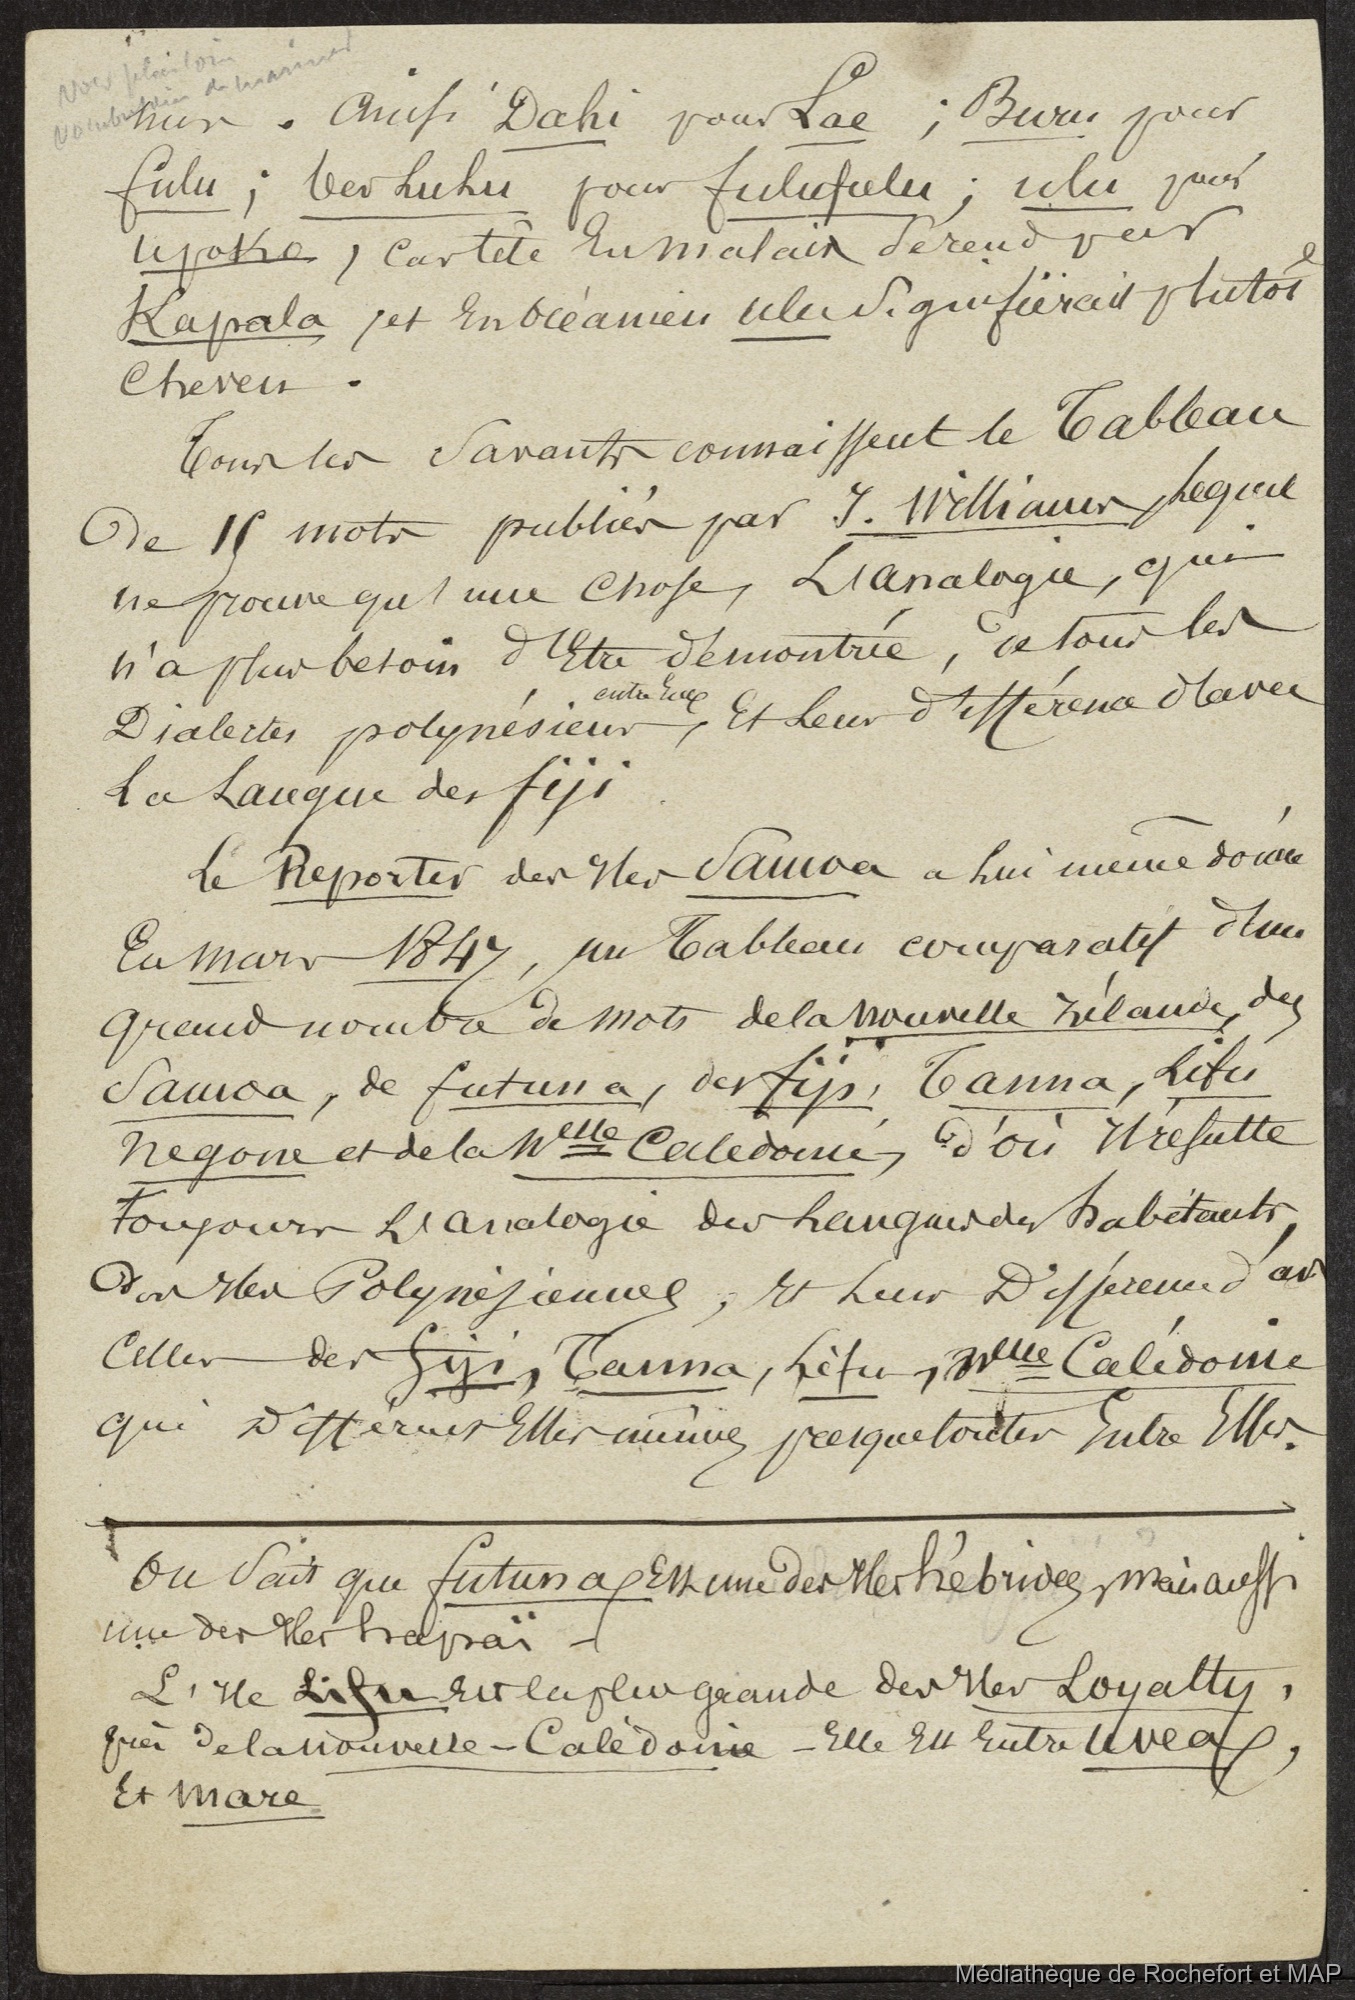 Voir plus loin
Vocabulaire de mariner
nus. Ainsi Dahi pour Lae ; Buru pour
fulu ; verhuhu pour fulufulu ; ulu pour
upoko, car tête En malais se rend par
Kapala, et En océanien ulu signifierait plutôt
Cheveu.
Tous les Savants connaissent le Tableau
De 15 mots publiés par J. Williams, lequel
ne prouve qu'une Chose, L'analogie, qui
n'a plus besoin d'Etre démontrée, de tous les
Dialectes polynésiens entre Eux, Et leur différence d'avec
La Langue des fiji
Le Reporter des Iles Samoa a lui même donné
En mars 1847, un Tableau comparatif d'un
Grand nombre de mots de la nouvelle zélande, des
Samoa, de futuna, des fiji, Tanna, Lifu
Negone et de la Nelle Calédonie, d'où Il résulte
Toujours L'analogie des Langues des habitants,
Des Iles Polynésiennes, Et leur Différence d'av
Celles des fiji, Tanna, Lifu, Nelle Calédonie
qui Diffèrent Elles mêmes presque toutes Entre Elles.
On Sait que futuna Est une des Iles hébrides, mais aussi
une des Iles hapaï -
L'Ile Lifu Est la plus grande des Iles Loyalty,
près de la nouvelle-Calédonie - Elle Est Entre uvea,
Et mare
Médiathèque de Rochefort et MAP